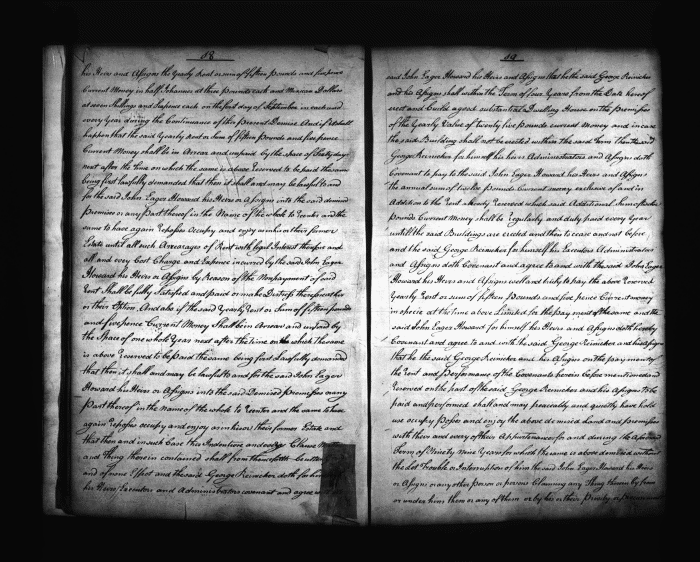 58
his Heirs and Assigns the Yearly Rent or sum of fifteen Pounds and five pence
Current Money in half Johannes at three pounds each and Mexican Dollars
at seven Shillings and Sixpence each on the first day of September in each and
every Year during the Continuance of this Present Demise. And if it shall
happen that the said Yearly Rent or Sum of fifteen Pounds and five pence
Current Money shall be in Arrear and unpaid by the space of Sixty days
next after the time on which the same is above reserved to be paid the same
being first lawfully demanded that then it shall and may be lawful to and
for the said John Eager Howard his Heirs or Assigns into the said demised
Premises or any Part thereof in the Name of the whole to Reenter and the
same to have again Repossess Occupy and enjoy as in his or their former
Estate until all such Arrearages of Rent with legal Interest thereon and
all and every Cost Charge and Expence incurred by the said John Eager
Howard his Heirs or Assigns by Reason of the Nonpayment of said
Rent Shall be fully Satisfied and paid or make Distress therefor at his
or their Option. And also if the said Yearly Rent or Sum of fifteen pounds
and five pence Current Money Shall be in Arrear and unpaid by
the Space of one whole Year next after the time on which the same
is above Reserved to be paid the same being first Lawfully demanded
that then it shall and may be lawful to and for the said John Eager
Howard his Heirs or Assigns into the said Demised premises or any
Part thereof in the name of the whole to Reenter and the same to have
again Repossess occupy and enjoy as in his or their former Estate and
that then and in such Case this Indenture and every Clause
and thing therein contained shall from thenceforth
and of none Effect and the said George Reinecker doth for
his Heirs Executors and Administrators covenant and agree
59
said John Eager Howard his Heirs and Assigns that he the said George Reinecker
and his Assigns shall within the Term of four Years from the Date hereof
erect and build a good substantial Dwelling House on the premises
of the Yearly Value of twenty five pounds current Money and in case
the said Building shall not be erected within the said Term then the said
George Reinecker for himself his heirs Administrators and Assigns doth
Covenant to pay to the said John Eager Howard his Heirs and Assigns
the annual sum of twelve pounds Current money exclusive of and in
Addition to the Rent already reserved which said Additional Sum of twelve
pounds Current Money shall be Regularly and duly paid every Year
until the said Buildings are erected and then to cease and not before,
and the said George Reinecker for himself his Executors Administrators
and Assigns doth Covenant and agree to and with the said John Eager
Howard his Heirs and Assigns well and truly to pay the above Reserved
Yearly Rent or sum of fifteen Pounds and five pence Current money
in specie at the time above Limited for the payment of the same and the
said John Eager Howard for himself his Heirs and Assigns doth hereby
Covenant and agree to and with the said George Reinecker and his Assigns
that he the said George Reinecker and his Assigns on the payment of
the Rent and Performance of the Covenants herein before mentioned and
Reserved on the part of the said George Reinecker and his Assigns to be
paid and performed shall and may peaceably and quietly have hold
use occupy Possess and enjoy the above demised Land and premises
with their and every of their Appurtenances for and during the aforesaid
term of Ninety Nine Years for which the same is above demised without
the Let Trouble or Interruption of him the said John Eager Howard his Heirs
or Assigns or any other person or persons Claiming any Thing therein by from
or under him them or any of them or by his or their Privity or